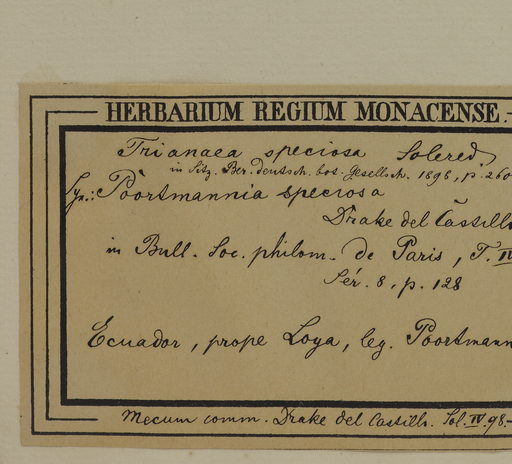 HERBARIUM REGIUM MONACENSE.-
Trianaea speciosa Solered.
in Sitz. Ber. deutsch. bot. Gesellsch. 1898, p. 260
Syn.: Poortmannia speciosa
Drake del Castillo
in Bull. Soc. philom. de Paris, T. IV
Sér. 8, p. 128
Ecuador, prope Loya, leg. Poortmann
Mecum comm. Drake del Castillo. Sol. IV. 98.-